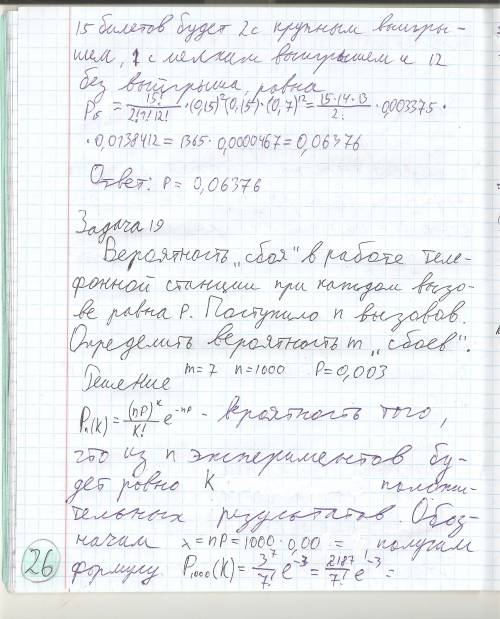 15 билетов будет 2 с крупным выигры-
шем, 1 с мелким выигрышем и 12
без выигрыша, равна
P₁₅ = 15!/(2!1!12!) · (0,15)²(0,15) · (0,7)¹² = (15·14·13)/2! · 0,003375 ·
· 0,0138412 = 1365 · 0,0000467 = 0,06376
Ответ: P = 0,06376
Задача 19
Вероятность „сбоя" в работе теле-
фонной станции при каждом вызо-
ве равна P. Поступило n вызовов.
Определить вероятность m „сбоев".
Решение m=7 n=1000 P=0,003
Pₙ(K) = (nP)ᴷ/K! e⁻ⁿᴾ - вероятность того,
что из n экспериментов бу-
дет ровно K положи-
тельных результатов. Обоз-
начим λ = nP = 1000 · 0,00 = получим
формулу P₁₀₀₀(K) = 3⁷/7! e⁻³ = 2187/7! e⁻³ =
26